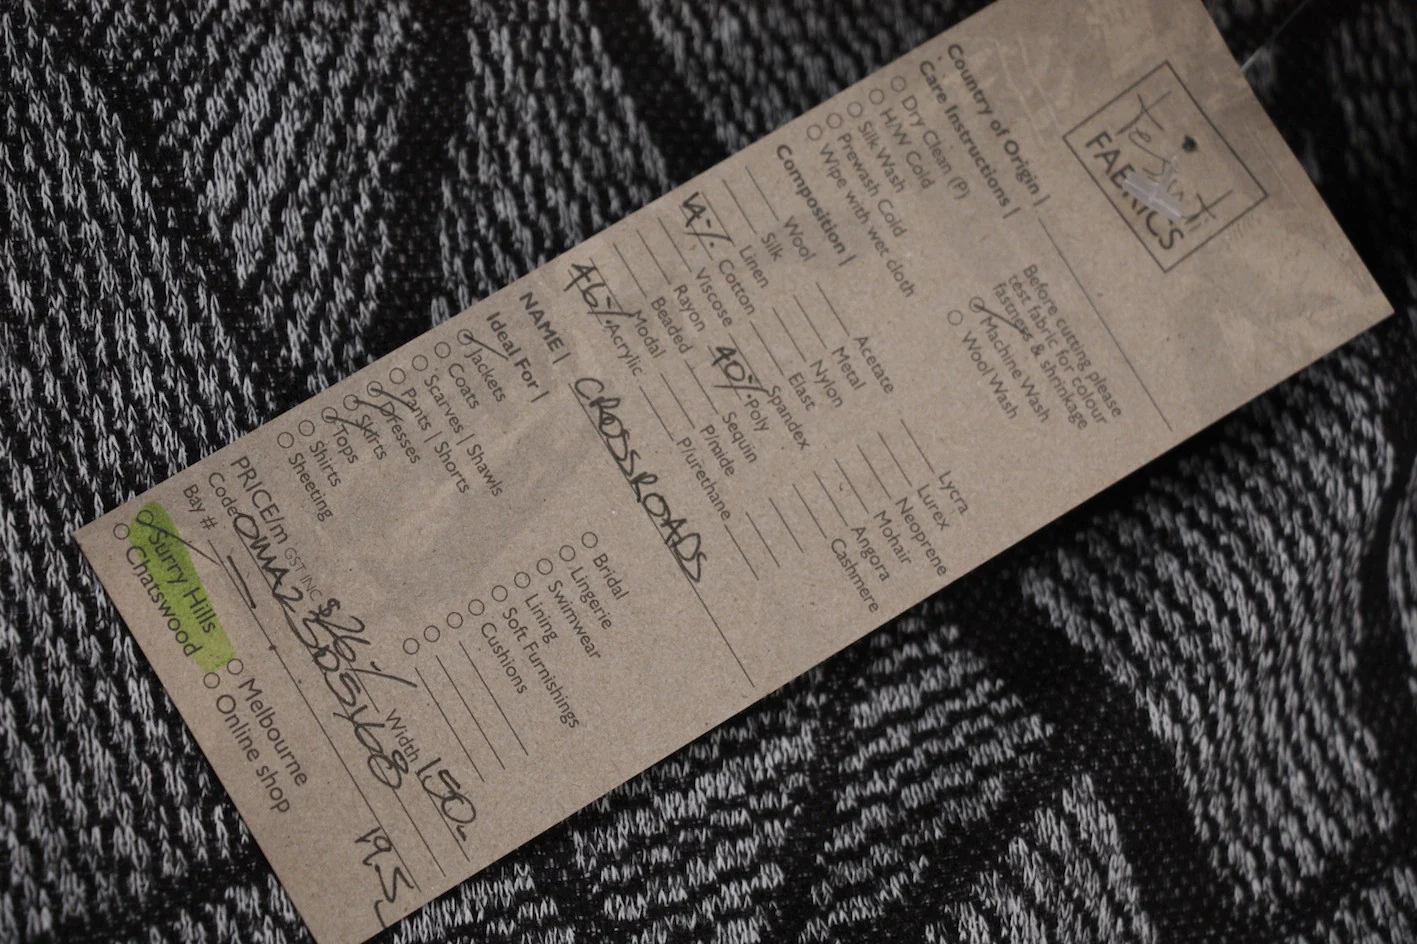 Tessuti
FABRICS
Country of Origin |
Care Instructions |
Dry Clean (P)
H/W Cold
Silk Wash
Prewash Cold
Wipe with wet cloth
Before cutting please
test fabric for colour
fastness & shrinkage
Machine Wash
Wool Wash
Composition |
Wool
Silk
Linen
14% Cotton
Viscose
Rayon
Beaded
Modal
46% Acrylic
Acetate
Metal
Nylon
Elast
Spandex
40% Poly
Sequin
P/mide
P/urethane
Lycra
Lurex
Neoprene
Mohair
Angora
Cashmere
NAME | CROSSROADS
Ideal For |
Jackets
Coats
Scarves | Shawls
Pants | Shorts
Dresses
Skirts
Tops
Shirts
Sheeting
Bridal
Lingerie
Swimwear
Lining
Soft Furnishings
Cushions
PRICE/m GST INC $26/ Width 150
Code
Bay #
19.5
Surry Hills
Chatswood
Melbourne
Online shop